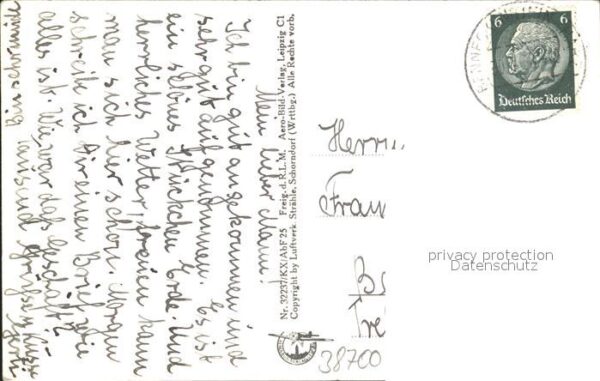 Mein lieber Mann!
Ich bin gut angekommen und
sehr gut aufgenommen. Es ist
ein schönes Stückchen Erde. Und
herrliches Wetter, freuen kann
man sich hier schon. Morgen
schreibe ich Dir einen Brief wie
alles ist. Wie war das Geschäft?
Bin sehr müde
und Grüße
Nr. 32237/KX/AbF 25 Freig. d. R.L.M. Aero-Bild-Verlag, Leipzig C1
Copyright by Luftverk. Strähle, Schorndorf (Wrttbg.) Alle Rechte vorb.
6 6
Deutsches Reich
Herrn
Frau
privacy protection
Datenschutz
38700